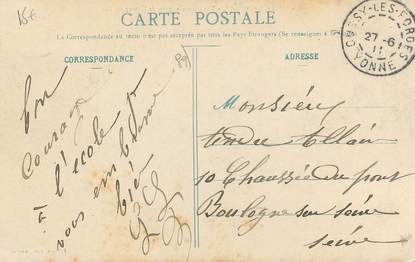 15€
CARTE POSTALE
La Correspondance au recto n'est pas acceptée par tous les Pays Etrangers (Se renseigner à la
CORRESPONDANCE
ADRESSE
CUSSY-LES-FORGES
27-6
11
YONNE
89
Bon
courage
à l'école
vous embrasse
bien
Monsieur
Allain
10 Chaussée du pont
Boulogne sur seine
seine